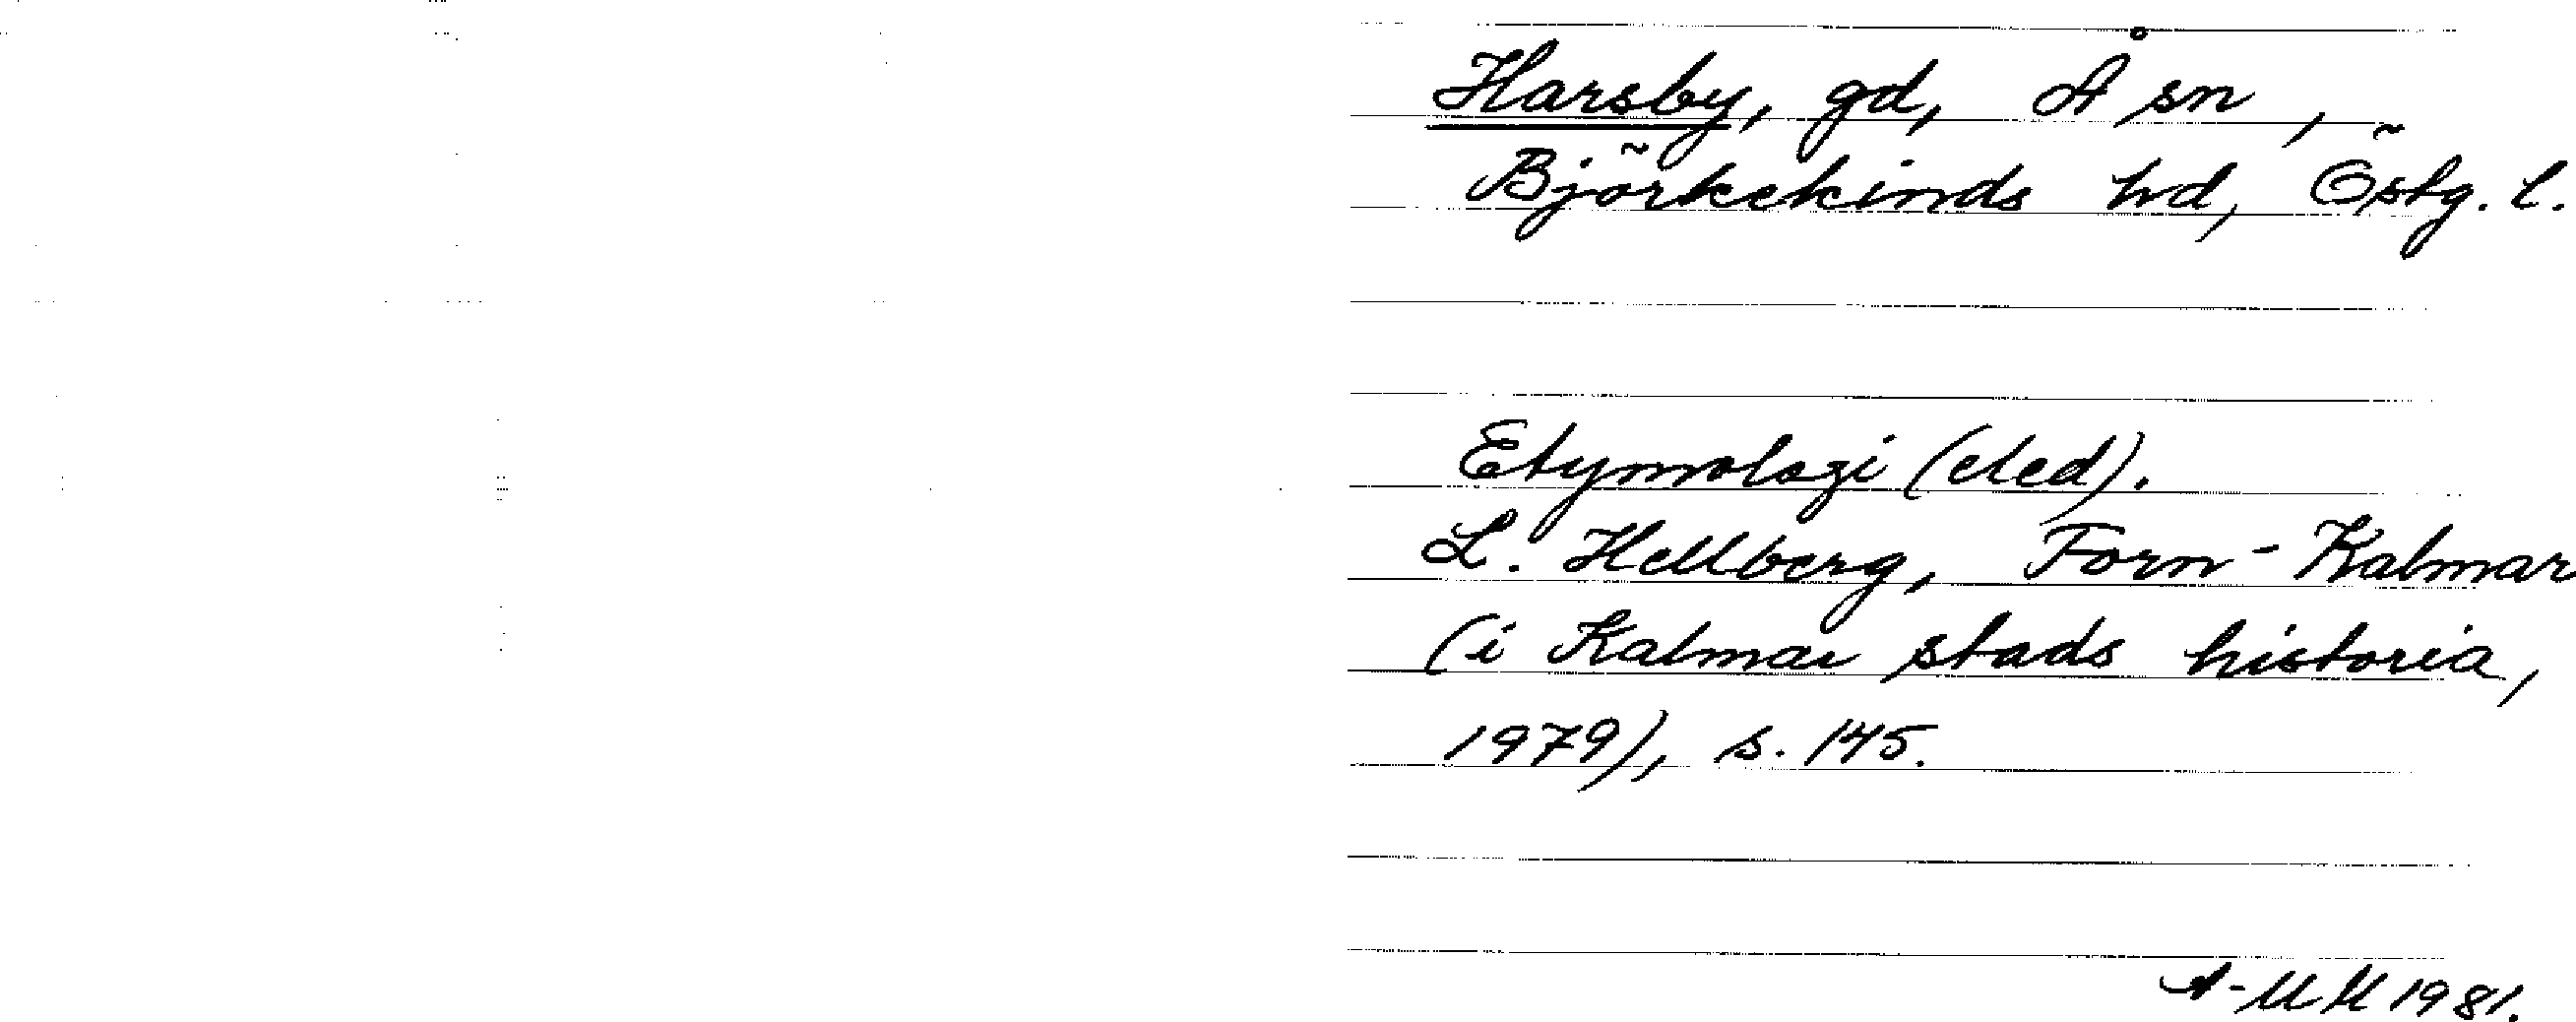 Harsby, gd, Å sn,
Björkekinds hd, Östg. l.
Etymologi (eled).
L. Hellberg, Forn-Kalmar
(i Kalmar stads historia,
1979), s. 145.
1981.